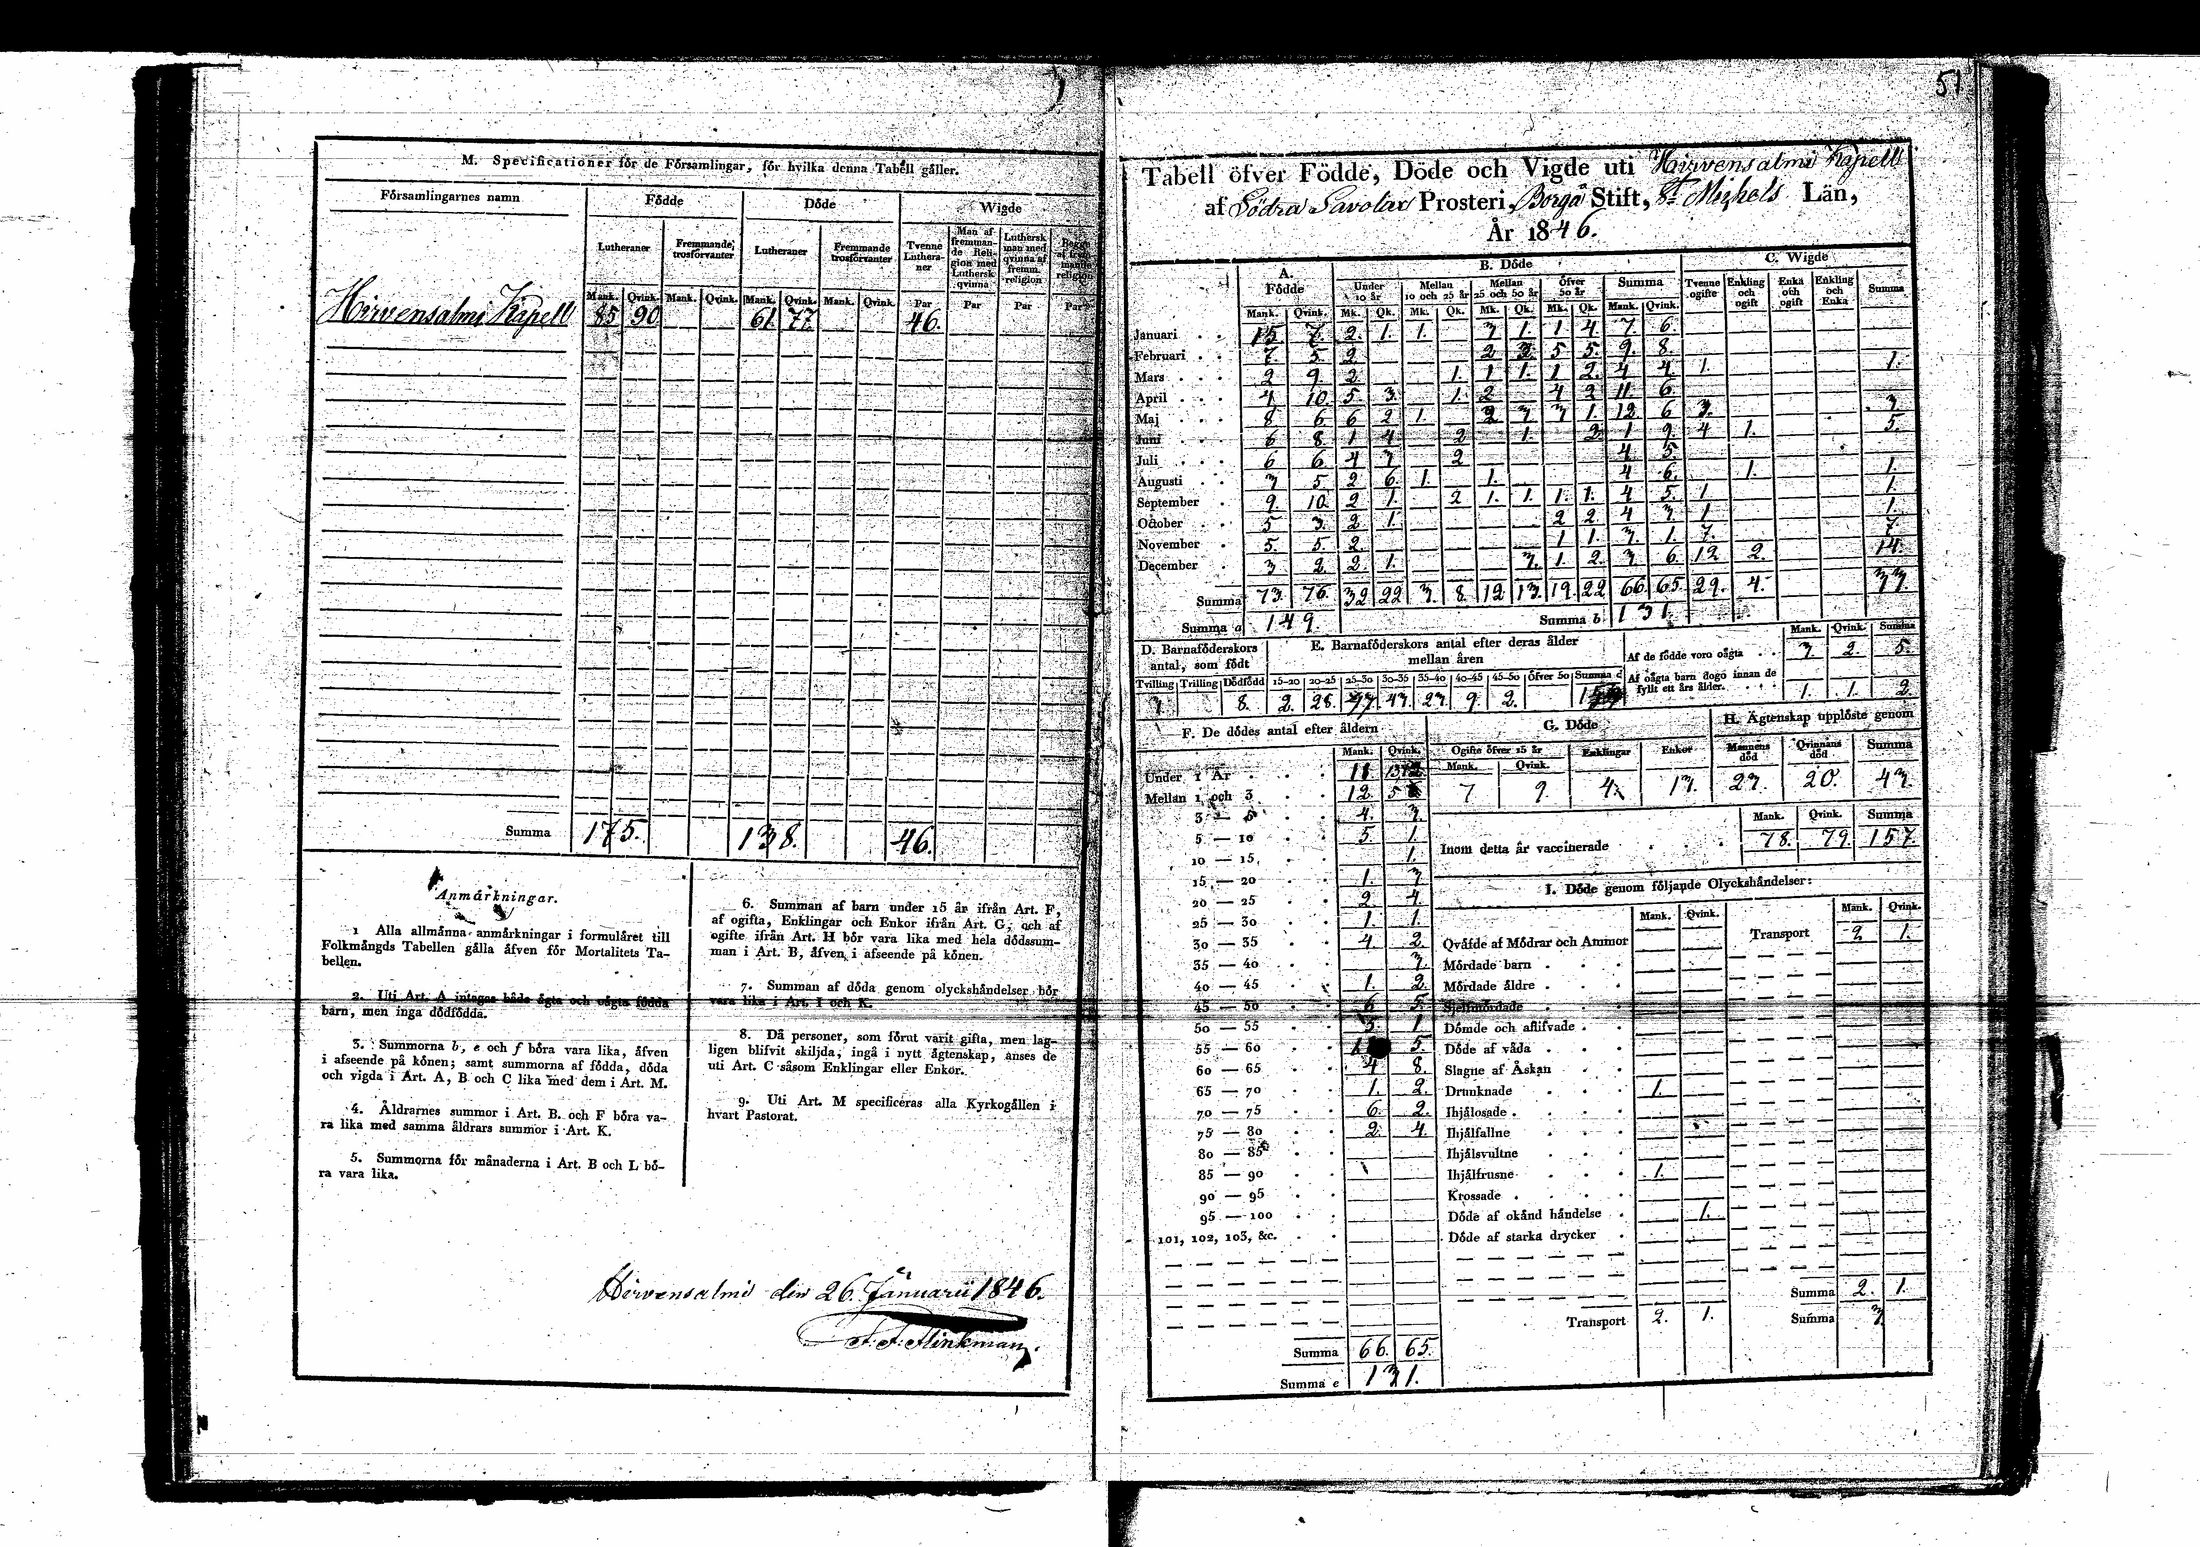 M. Specificationer fór de Fórsamlingar, fór hvilka denna Tabell gåller.
Fórsamlingarnes namn
Fódde Dóde Wigde
Lutheraner Fremmande trosfórvanter Lutheraner Fremmande trosfórvanter Tvenne Lutheraner Man af fremmande Religion med Luthersk qvinna Luthersk man med qvinna af fremm. religion
Mank. Qvink. Mank. Qvink. Mank. Qvink. Mank. Qvink. Par Par Par Par
Hirvensalmi Kapell 85 90 61. 77. 46.
Summa 175. 138. 46.
Anmárkningar.
1 Alla allmånna anmårkningar i formulåret till
Folkmångds Tabellen gålla åfven fór Mortalitets Ta-
bellen.
2. Uti Art. A intagas både ågta och oågta fódda
barn, men inga dódfódda.
3. Summorna b, e och f bóra vara lika, åfven
i afseende på kónen; samt summorna af fódda, dóda
och vigda i Art. A, B och C lika med dem i Art. M.
4. Åldrarnes summor i Art. B. och F bóra va-
ra lika med samma åldrars summor i Art. K.
5. Summorna fór månaderna i Art. B och L bó-
ra vara lika.
6. Summan af barn under 15 år ifrån Art. F,
af ogifta, Enklingar och Enkor ifrån Art. G, och af
ogifte ifrån Art. H bór vara lika med hela dódssum-
man i Art. B, åfven i afseende på kónen.
7. Summan af dóda genom olyckshåndelser bór
vara lika i Art. I och K.
8. Då personer, som fórut varit gifta, men lag-
ligen blifvit skiljda, ingå i nytt ågtenskap, anses de
uti Art. C såsom Enklingar eller Enkor.
9. Uti Art. M specificeras alla Kyrkogållen i
hvart Pastorat.
Hirvensalmi den 26. Januarii 1846.
51
Tabell öfver Födde, Döde och Vigde uti Hirvensalmi Kapell
af Södra Savolax Prosteri, Borgå Stift, St Michels Län,
År 1846.
A. Fódde B. Dóde C. Wigde
Under 10 år Mellan 10 och 25 år Mellan 25 och 50 år Öfver 50 år Summa Tvenne ogifte Enkling och ogift Enka och ogift Enkling och Enka Summa
Mank. Qvink. Mk. Qk. Mk. Qk. Mk. Qk. Mk. Qk. Mank. Qvink.
Januari 15 7. 2. 1. 1. 3 1. 1 4. 7. 6.
Februari 7. 5. 2 2 3. 5 5. 9. 8.
Mars 2 9. 2. 1. 1 1. 1 2. 4 4. 1. 1.
April 4 10. 5. 3. 1. 2 4 2 11 6.
Maj 8 6 6 2 1 2 3 3 1. 12 6 3. 3
Juni 6 8. 1 4 2 1. 2. 1 9. 4 1. 5.
Juli 6 6. 4 3 2 4 5.
Augusti 3 5 2 6. 1. 1. 4 6. 1. 1.
September 9. 10. 2 1. 2 1. 1. 1. 1. 4 5. 1. 1.
October 5 3. 2 1. 2 2. 4 3. 1 1.
November 5. 5. 2. 1 1. 3. 1. 7. 7.
December 3 2. 2. 1. 3. 1. 2. 3 6. 12 2. 14.
Summa 73. 76. 32 22 3. 8. 12 13 19. 22 66. 65. 29. 4. 33.
Summa a 149. Summa b 131.
D. Barnafóderskors antal, som fódt
E. Barnafóderskors antal efter deras ålder mellan åren
Mank. Qvink. Summa
Af de fódde voro oågta 3. 2. 5.
Af oågta barn dogo innan de fyllt ett års ålder. 1. 1. 2.
Tvilling Trilling Dódfódd 15-20 20-25 25-30 30-35 35-40 40-45 45-50 ófver 50 Summa
8. 2. 28. 43. 23. 9. 2.
F. De dódes antal efter åldern
Mank. Qvink.
Under 1 År 11
Mellan 1 och 3 12 5
3 — 5 4. 3.
5 — 10 5. 1.
10 — 15 1.
15 — 20 1. 3
20 — 25 2. 4.
25 — 30 1. 1.
30 — 35 4. 2.
35 — 40 3.
40 — 45 1. 2.
45 — 50 6 5.
50 — 55 3. 1
55 — 60 5.
60 — 65 4 8.
65 — 70 1. 2.
70 — 75 6. 2.
75 — 80 2. 4.
80 — 85
85 — 90
90 — 95
95 — 100
101, 102, 103, &c.
Summa 66. 65.
Summa e 131.
G. Dóde
Ogifte ófver 15 år Enklingar Enkor
Mank. Qvink.
7 9. 4. 13.
H. Ågtenskap upplóste genom
Mannens dód Qvinnans dód Summa
23. 20. 43.
Mank. Qvink. Summa
Inom detta år vaccinerade 78. 79. 157.
I. Dóde genom fóljande Olyckshåndelser:
Mank. Qvink. Mank. Qvink.
Transport 2 1.
Qvåfde af Módrar och Ammor
Mórdade barn
Mórdade åldre
Sjelfmórdade
Dómde och aflifvade
Dóde af våda
Slagne af Åskan
Drunknade 1.
Ihjålosade
Ihjålfallne
Ihjålsvultne
Ihjålfrusne 1.
Krossade
Dóde af okånd håndelse 1.
Dóde af starka drycker
Summa 2. 1.
Transport 2. 1. Summa 3